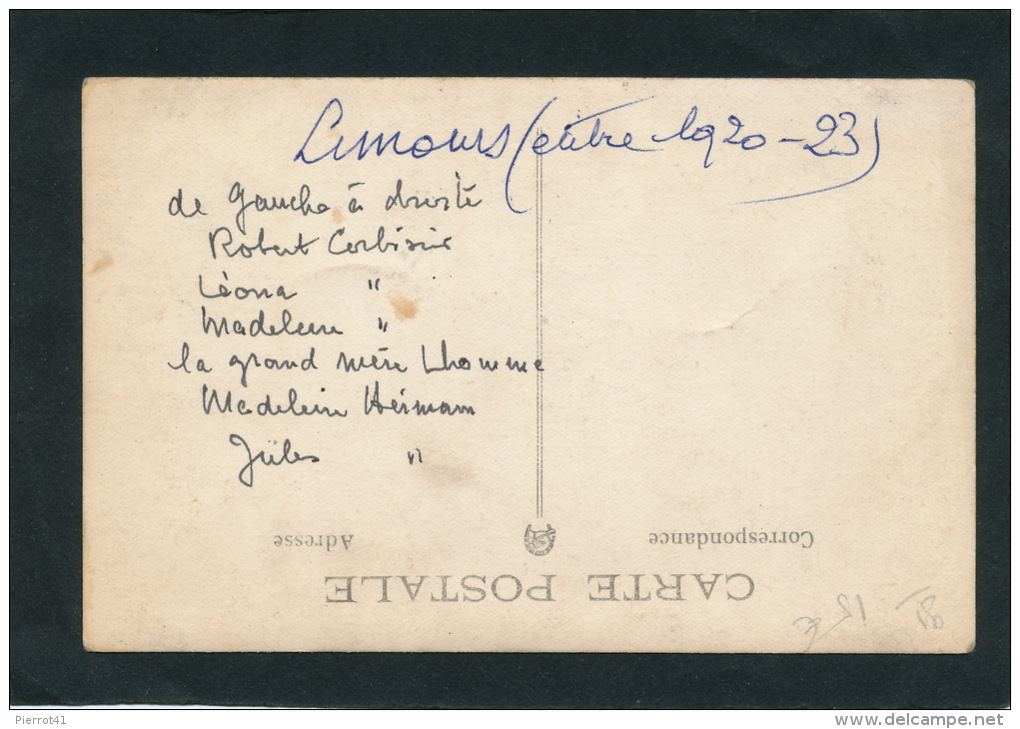 Limours (entre 1920-23)
de Gauche à droite
Robert Corbisier
Léona "
Madeleine "
la grand mère Lhomme
Madeleine Hermann
Jules "
Correspondance
Adresse
CARTE POSTALE
15 €
Pierrot41
www.delcampe.net